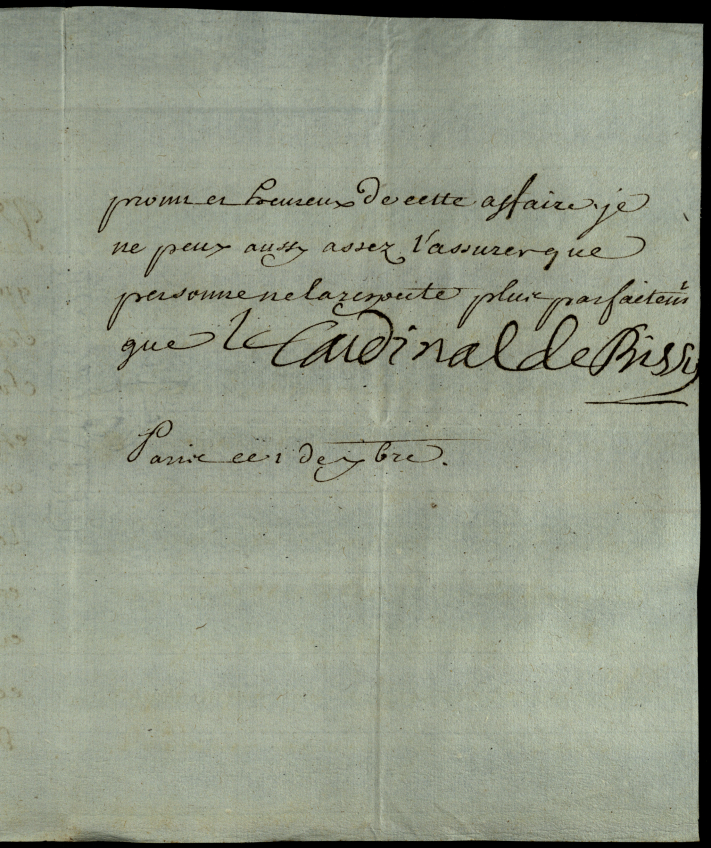 promt et heureux de cette affaire. je
ne peux aussy assez l'assurer que
personne ne la respecte plus parfaitem.t
que le Cardinal de Bissy
Paris ce 1 de xbre.